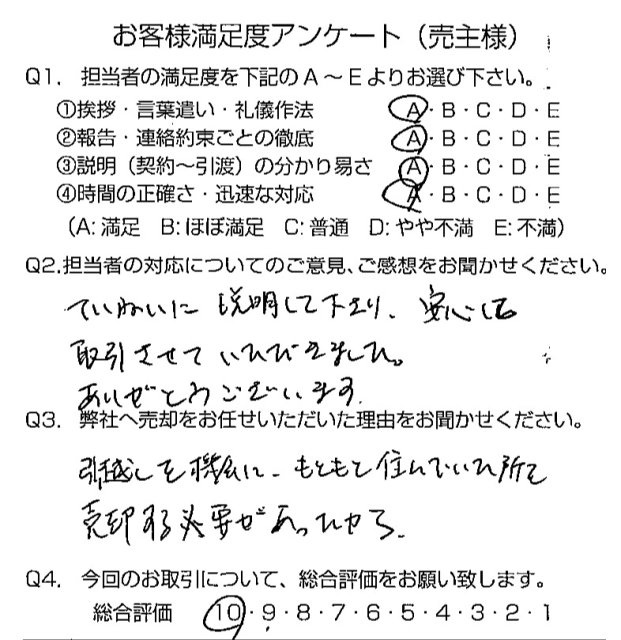 お客様満足度アンケート（売主様）
Q1. 担当者の満足度を下記のA～Eよりお選び下さい。
①挨拶・言葉遣い・礼儀作法 A・B・C・D・E
②報告・連絡約束ごとの徹底 A・B・C・D・E
③説明（契約～引渡）の分かり易さ A・B・C・D・E
④時間の正確さ・迅速な対応 A・B・C・D・E
（A:満足 B:ほぼ満足 C:普通 D:やや不満 E:不満）
Q2.担当者の対応についてのご意見、ご感想をお聞かせください。
ていねいに説明して下さり、安心して
取引させていただきました。
ありがとうございます.
Q3. 弊社へ売却をお任せいただいた理由をお聞かせください。
引越しを機会に、もともと住んでいた所を
売却する必要があったから.
Q4. 今回のお取引について、総合評価をお願い致します。
総合評価 10・9・8・7・6・5・4・3・2・1